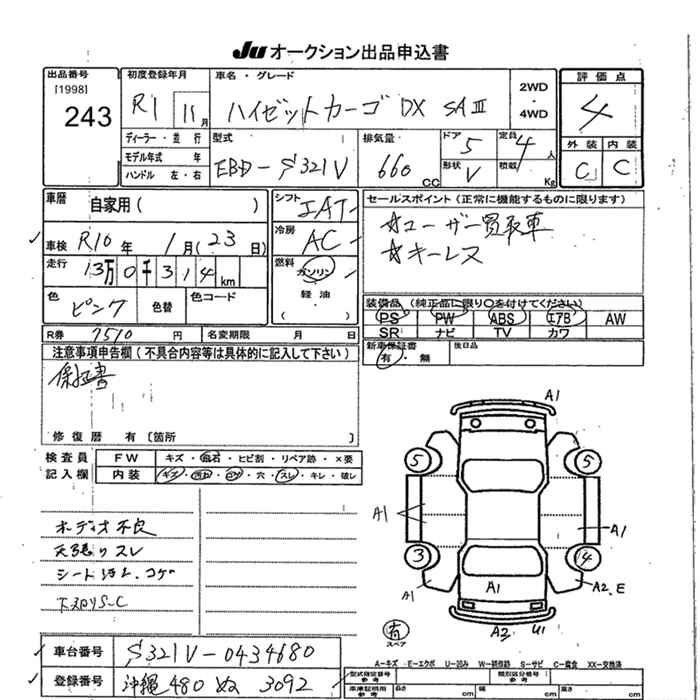 JU オークション出品申込書
出品番号
[1998]
243
初度登録年月
R1 11月
車名・グレード
ハイゼットカーゴ DX SAⅢ
2WD
・
4WD
評価点
4
外装 内装
C C
ディーラー・並行
モデル年式 年
ハンドル 左・右
型式
EBD-S321V
排気量
660 CC
ドア 5
形状 V
定員 4人
積載 Kg
車歴
自家用( )
車検 R10年 1月(23日)
走行 13万0千314km
色 ピンク
色替
色コード
シフト IAT
冷房 AC
燃料 ガソリン
(軽油)
セールスポイント(正常に機能するものに限ります)
☆ユーザー買取車
☆キーレス
装備品(純正品に限り○を付けてください)
PS PW ABS エアB AW
SR ナビ TV カワ
R券 7510円
名変期限 月 日
新車保証書
有・無
後日品
注意事項申告欄(不具合内容等は具体的に記入して下さい)
保証書
修復歴 有〔箇所 〕
検査員
記入欄
FW キズ・飛石・ヒビ割・リペア跡・×要
内装 キズ・汚れ・コゲ・穴・スレ・キレ・破レ
オーディオ不良
天張りスレ
シート汚レ、コゲ
下回りS-C
A1
5 5
A1 A1
3 4
A1 A1 A2、E
A2 U1
有
スペア
A-キズ E-エクボ U-凹み W-補修跡 S-サビ C-腐食 XX-交換済
車台番号 S321V-0434680
登録番号 沖縄480 ぬ 3092
型式指定番号
参考
類別区分番号
参考
車庫証明用
参考
長さ cm 幅 cm 高さ cm